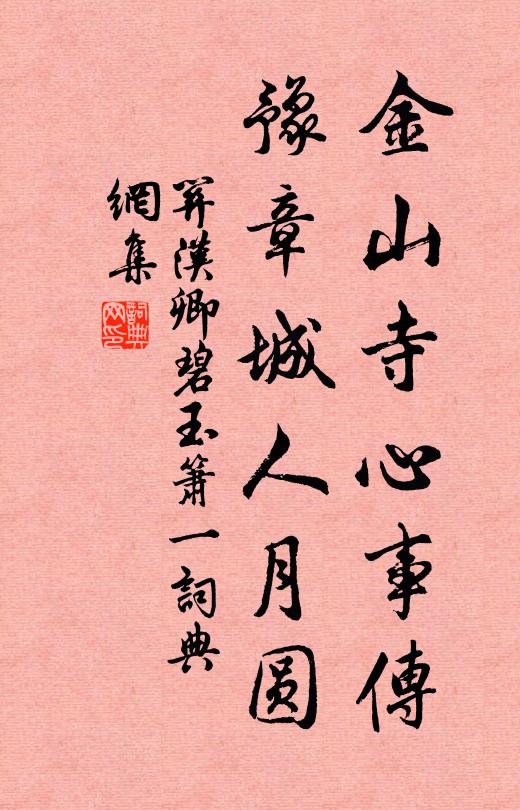 金山寺心事傳
豫章城人月圓
關漢卿碧玉簫一詞典
網集
詞典網印